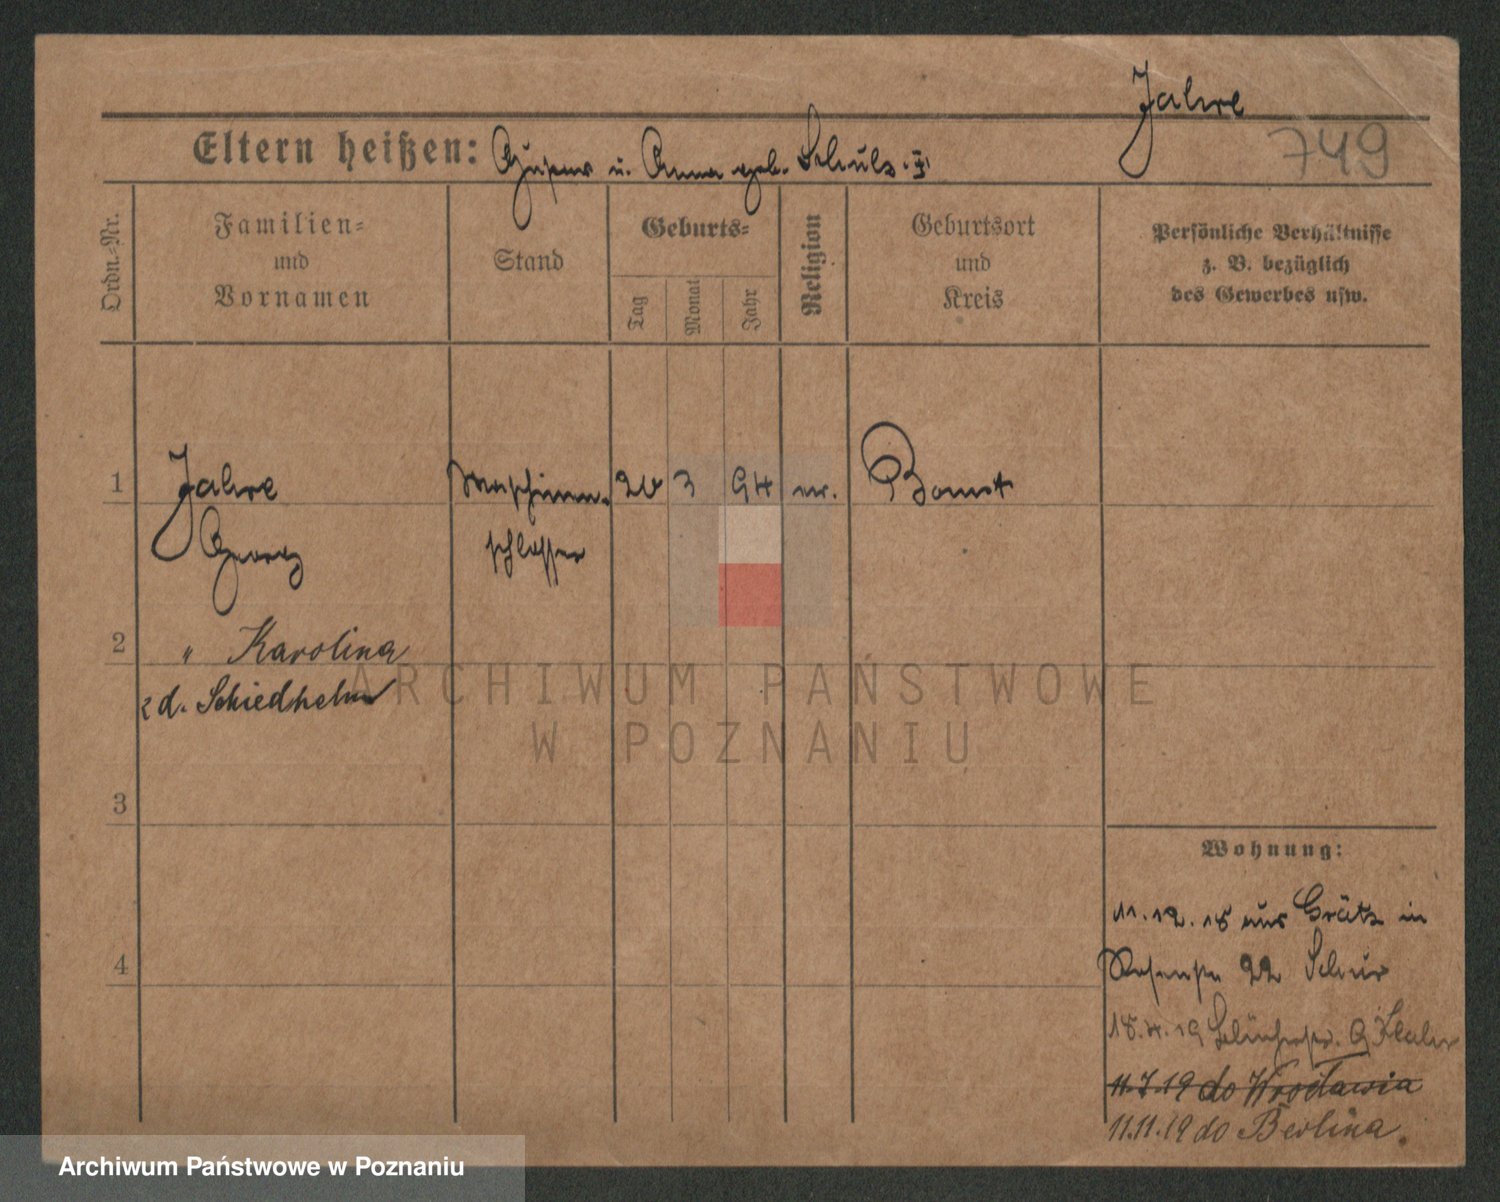 Jahre
749
Eltern heißen: Gustav u. Anna geb. Schulz
Ordn.-Nr.
Familien-
und
Vornamen
Stand
Geburts-
Tag
Monat
Jahr
Religion
Geburtsort
und
Kreis
Persönliche Verhältnisse
z. B. bezüglich
des Gewerbes usw.
1
Jahre
Georg
Maschinen-
schlosser
20 3 94
Bomst
2
" Karolina
z d. Schiedhelm
3
4
Wohnung:
11.12.18 aus Grätz in
22
18.4.19 9
11.7.19 do Wrocławia
11.11.19 do Berlina.
ARCHIWUM PAŃSTWOWE
W POZNANIU
Archiwum Państwowe w Poznaniu